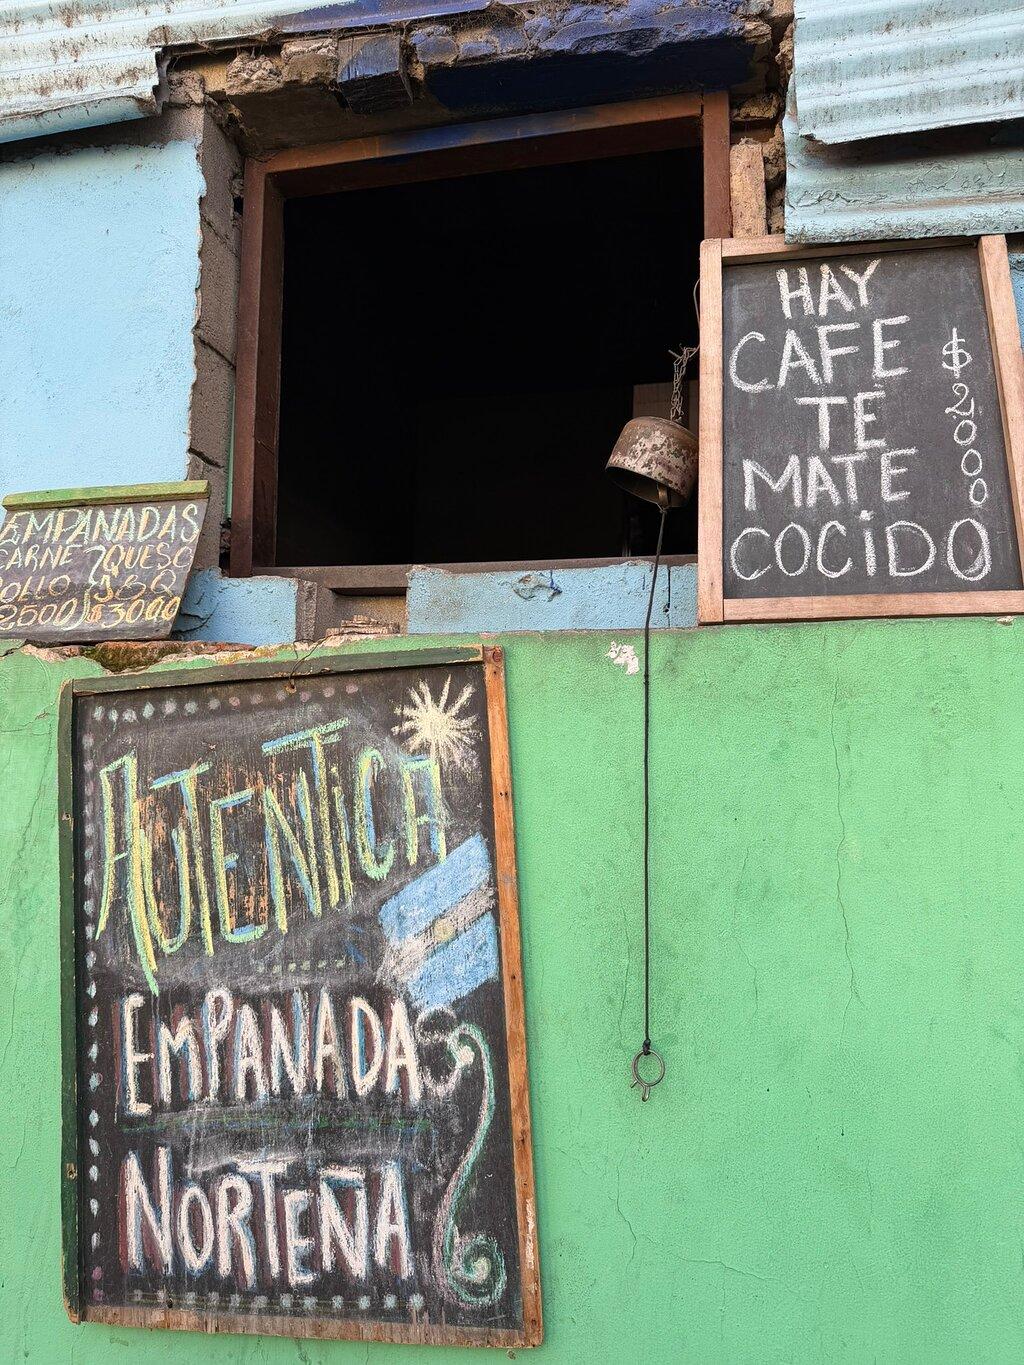 HAY
CAFE
TE
MATE
COCiDO
$2000
EMPANADAS
CARNE QUESO
POLLO JBQ
2500 $3000
AUTENTiCA
EMPANADA
NORTEÑA